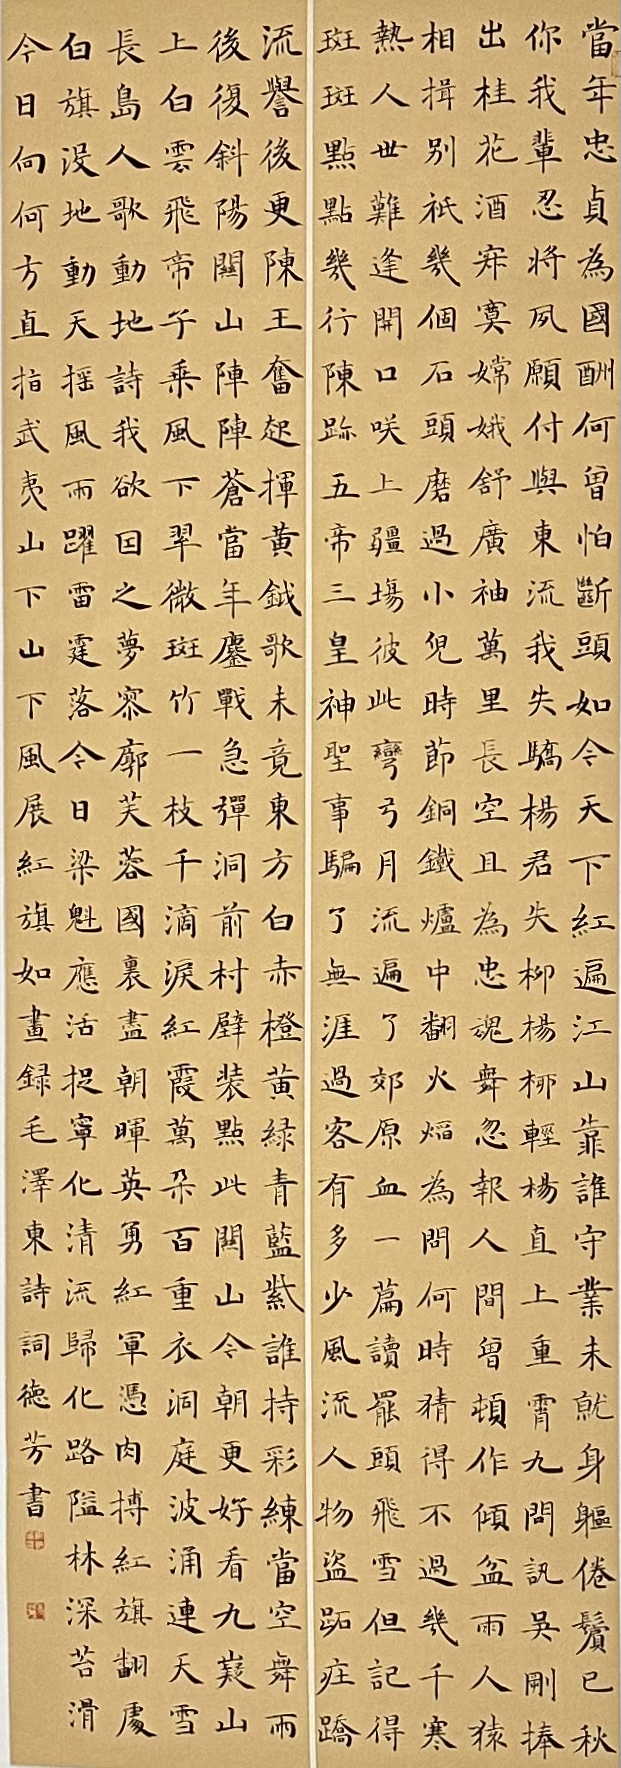 當年忠貞為國酬何曾怕斷頭如今天下紅遍江山靠誰守業未就身軀倦鬢已秋
你我輩忍將夙願付與東流我失驕楊君失柳楊柳輕楊直上重霄九問訊吳剛捧
出桂花酒寂寞嫦娥舒廣袖萬里長空且為忠魂舞忽報人間曾頓作傾盆雨人猿
相揖別祇幾個石頭磨過小兒時節銅鐵爐中翻火焰為問何時猜得不過幾千寒
熱人世難逢開口咲上疆場彼此彎弓月流遍了郊原血一篇讀罷頭飛雪但記得
斑斑點點幾行陳跡五帝三皇神聖事騙了無涯過客有多少風流人物盜跖莊蹻
流譽後更陳王奮起揮黃鉞歌未竟東方白赤橙黃綠青藍紫誰持彩練當空舞雨
後復斜陽關山陣陣蒼當年鏖戰急彈洞前村壁裝點此關山今朝更好看九嶷山
上白雲飛帝子乘風下翠微斑竹一枝千滴淚紅霞萬朵百重衣洞庭波涌連天雪
長島人歌動地詩我欲因之夢寥廓芙蓉國裏盡朝暉英勇紅軍憑肉搏紅旗翻處
白旗没地動天搖風雨躍雷霆落今日梁魁應活捉寧化清流歸化路隘林深苔滑
今日向何方直指武夷山下山下風展紅旗如畫録毛澤東詩詞德芳書